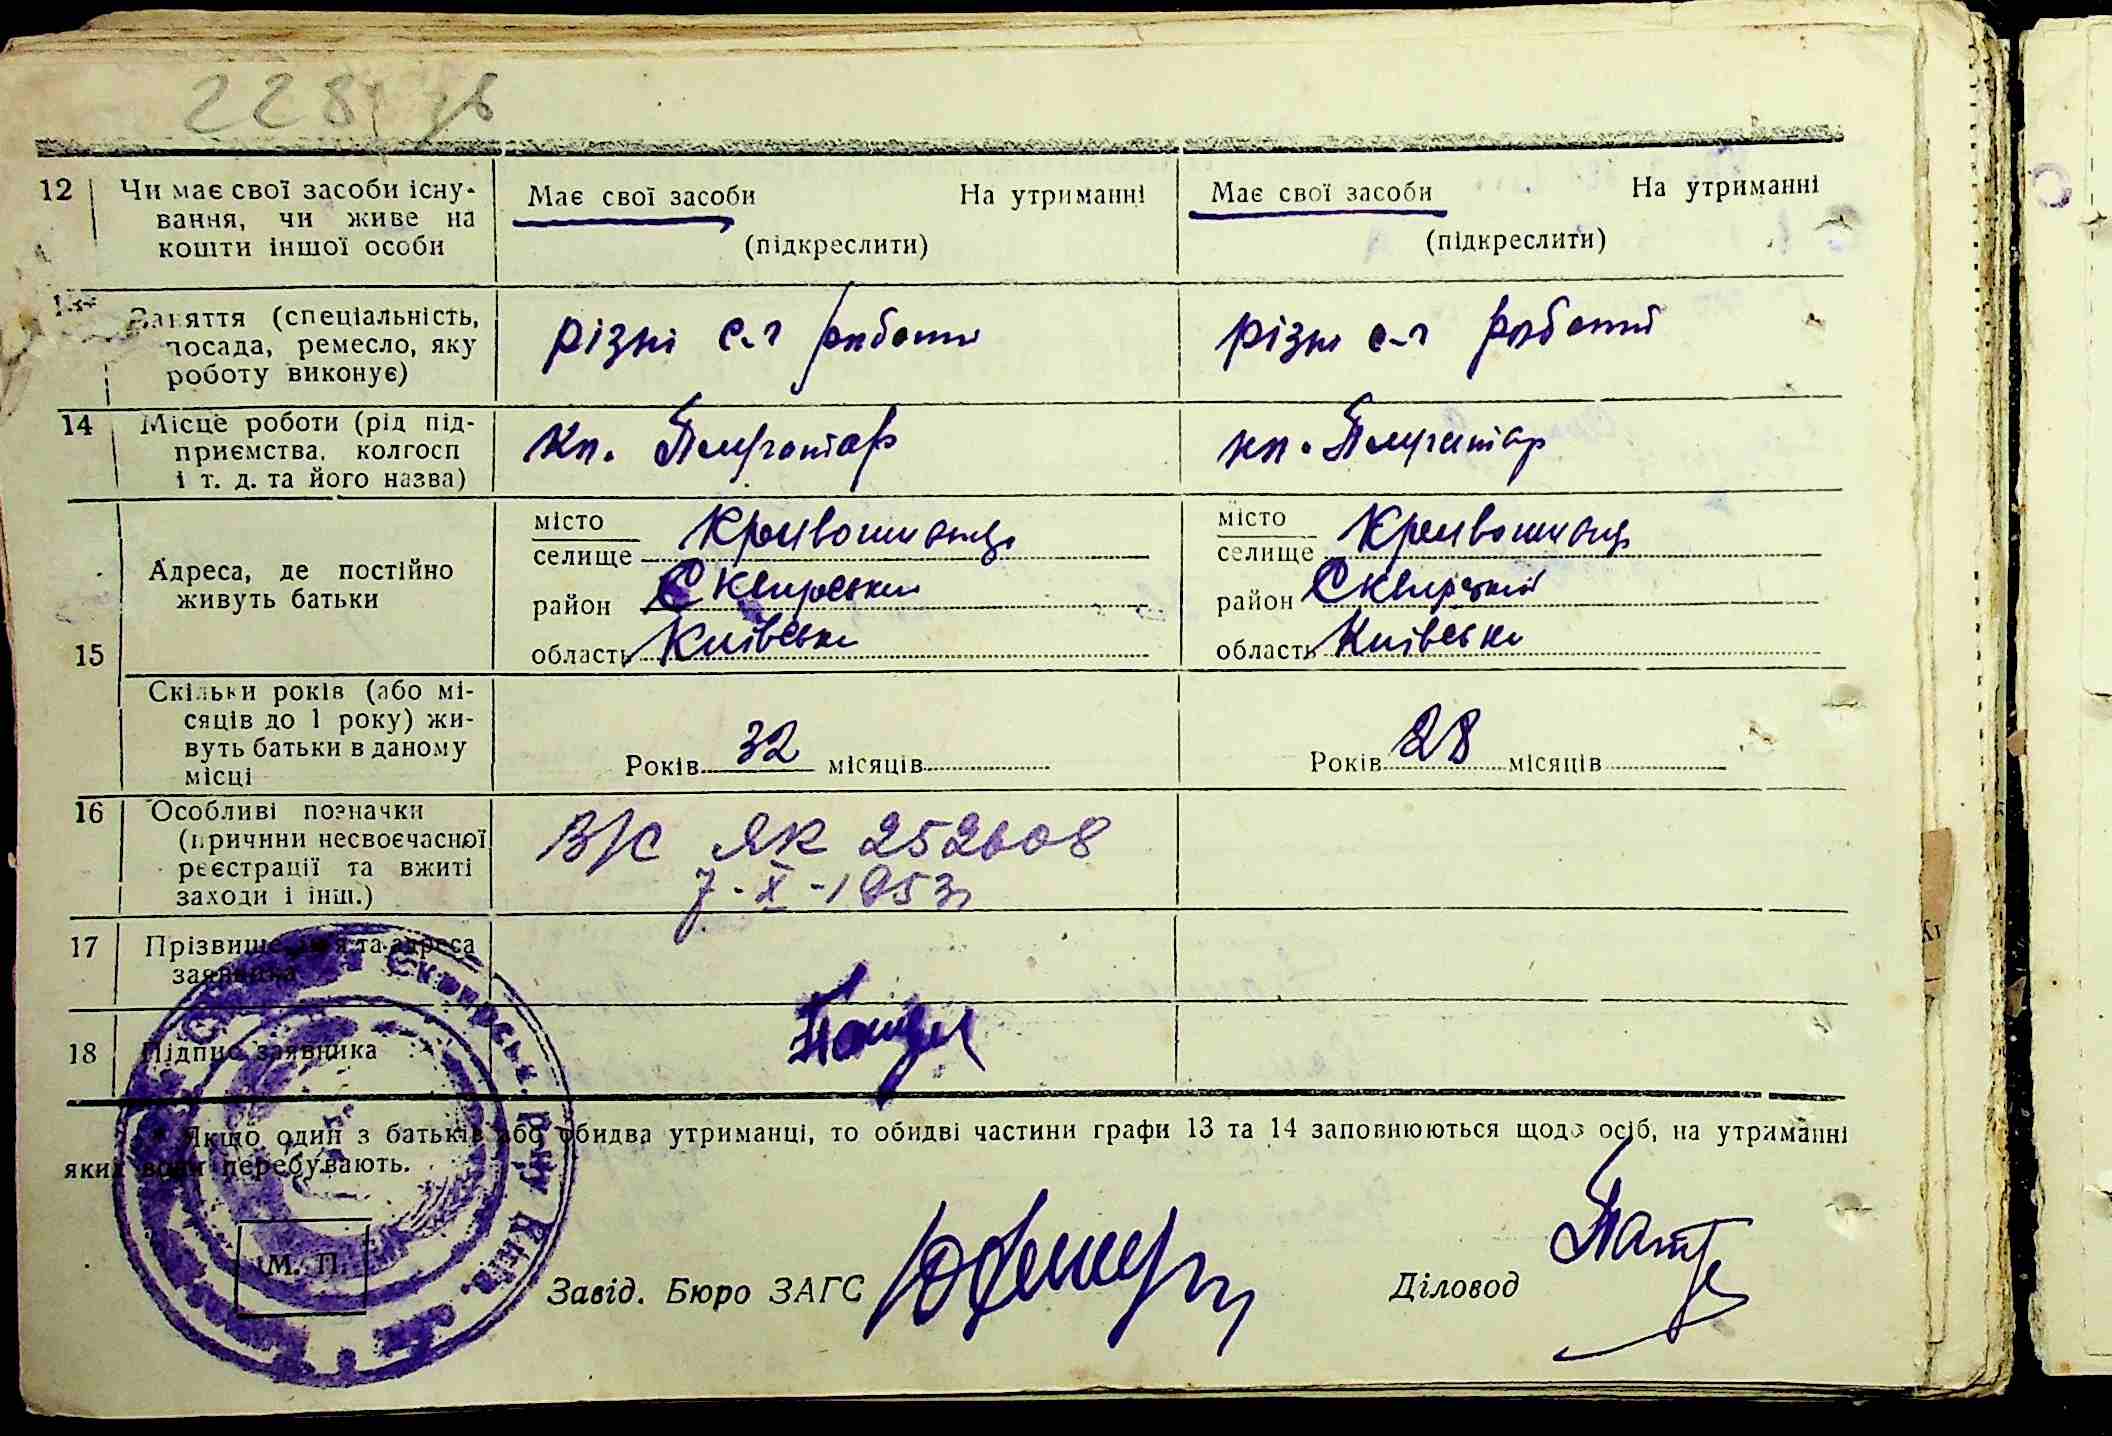 228 зв
12 Чи має свої засоби існу-
вання, чи живе на
кошти іншої особи
Має свої засоби На утриманні
(підкреслити)
Має свої засоби На утриманні
(підкреслити)
13 Заняття (спеціальність,
посада, ремесло, яку
роботу виконує)
різні с-г роботи
різні с-г роботи
14 Місце роботи (рід під-
приємства, колгосп
і т. д. та його назва)
кп. Плугатар
кп. Плугатар
15 Адреса, де постійно
живуть батьки
місто
селище Кривошиинці
район Сквирський
область Київська
місто
селище Кривошиинці
район Сквирський
область Київська
Скільки років (або мі-
сяців до 1 року) жи-
вуть батьки в даному
місці
Років 32 місяців
Років 28 місяців
16 Особливі позначки
(причини несвоєчасної
реєстрації та вжиті
заходи і інш.)
В/с ЯК 252608
7-X-1953
17 Прізвище, ім'я та адреса
заявника
18 Підпис заявника
* Якщо один з батьків або обидва утриманці, то обидві частини графи 13 та 14 заповнюються щодо осіб, на утриманні
яких вони перебувають.
Сквирськ. р-ну Київ.
М. П.
Завід. Бюро ЗАГС
Діловод